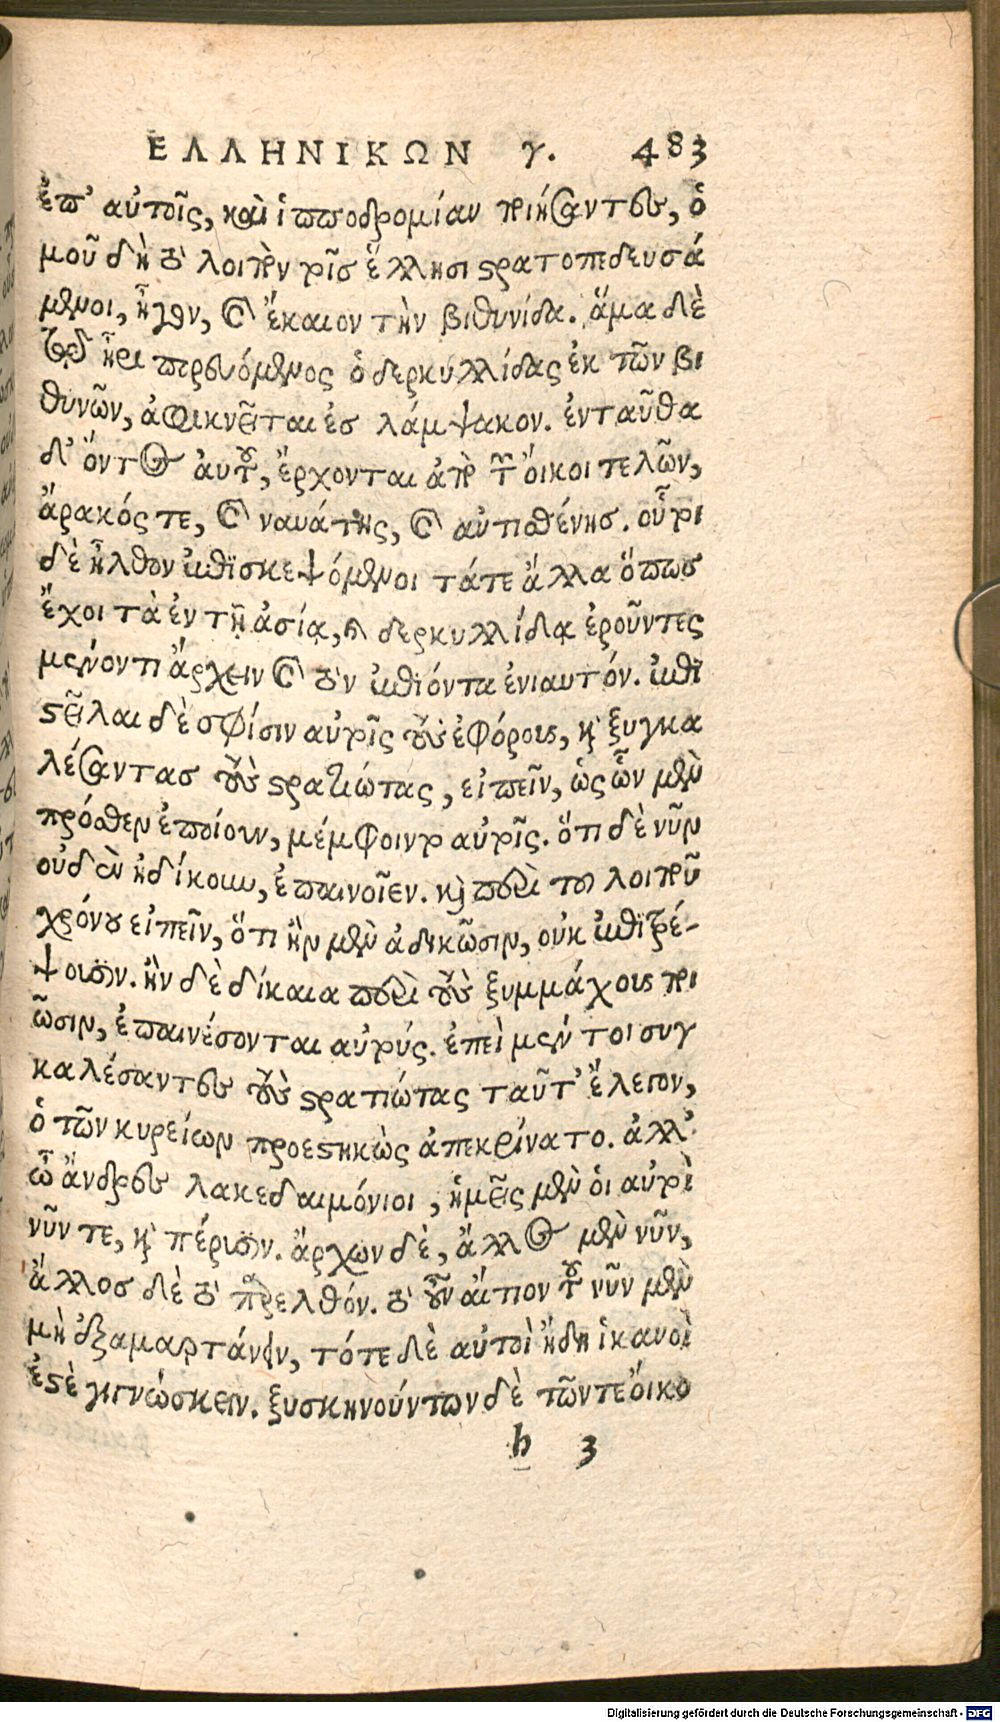 ΕΛΛΗΝΙΚΩΝ γ. 483
ἐπ' αὐτοῖς, καὶ ἱπποδρομίαν ποιήσαντες, ὁ
μοῦ δὴ τὸ λοιπὸν τοῖσ ἕλλησι στρατοπεδευσά
μενοι, ἦγον, καὶ ἔκαιον τὴν βιθυνίδα. ἅμα δὲ
τῷ ἦρι πορευόμενος ὁ δερκυλλίδας ἐκ τῶν βι
θυνῶν, ἀφικνεῖται ἐσ λάμψακον. ἐνταῦθα
δ' ὄντος αὐτοῦ, ἔρχονται ἀπὸ τῶν ὄικοι τελῶν,
ἄρακός τε, καὶ ναυάτης, καὶ αὐτισθένησ. οὗτοι
δὲ ἦλθον ἐπισκεψόμενοι τάτε ἄλλα ὅπωσ
ἔχοι τὰ ἐν τῇ ἀσίᾳ, καὶ δερκυλλίδᾳ ἐροῦντες
μένοντι ἄρχειν καὶ τὸν ἐπιόντα ἐνιαυτόν. ἐπι
στεῖλαι δὲ σφίσιν αὐτοῖς τοὺς ἐφόρους, καὶ ξυγκα
λέσαντασ τοὺς στρατιώτας, εἰπεῖν, ὡς ὧν μὲν
πρόσθεν ἐποίουν, μέμφοιντο αὐτοῖς. ὅτι δὲ νῦν
οὐδὲν ἠδίκουν, ἐπαινοῖεν. καὶ περὶ τοῦ λοιποῦ
χρόνου εἰπεῖν, ὅτι ἢν μὲν ἀδικῶσιν, οὐκ ἐπιτρέ-
ψουσιν. ἢν δὲ δίκαια περὶ τοὺς ξυμμάχους ποι
ῶσιν, ἐπαινέσονται αὐτούς. ἐπεὶ μέν τοι συγ
καλέσαντες τοὺς στρατιώτας ταῦτ' ἔλεγον,
ὁ τῶν κυρείων προεστηκὼς ἀπεκρίνατο. ἀλλ'
ὦ ἄνδρες λακεδαιμόνιοι, ἡμεῖς μὲν οἱ αὐτοὶ
νῦν τε, καὶ πέρισιν. ἄρχων δὲ, ἄλλος μὲν νῦν,
ἄλλοσ δὲ τὸ παρελθόν. τὸ οὖν αἴτιον τοῦ νῦν μὲν
μὴ ἐξαμαρτάνειν, τότε δὲ αὐτοὶ ἤδη ἱκανοὶ
ἐστὲ γιγνώσκειν. ξυσκηνούντων δὲ τῶν τε ὄικο
h 3
Digitalisierung gefördert durch die Deutsche Forschungsgemeinschaft - DFG